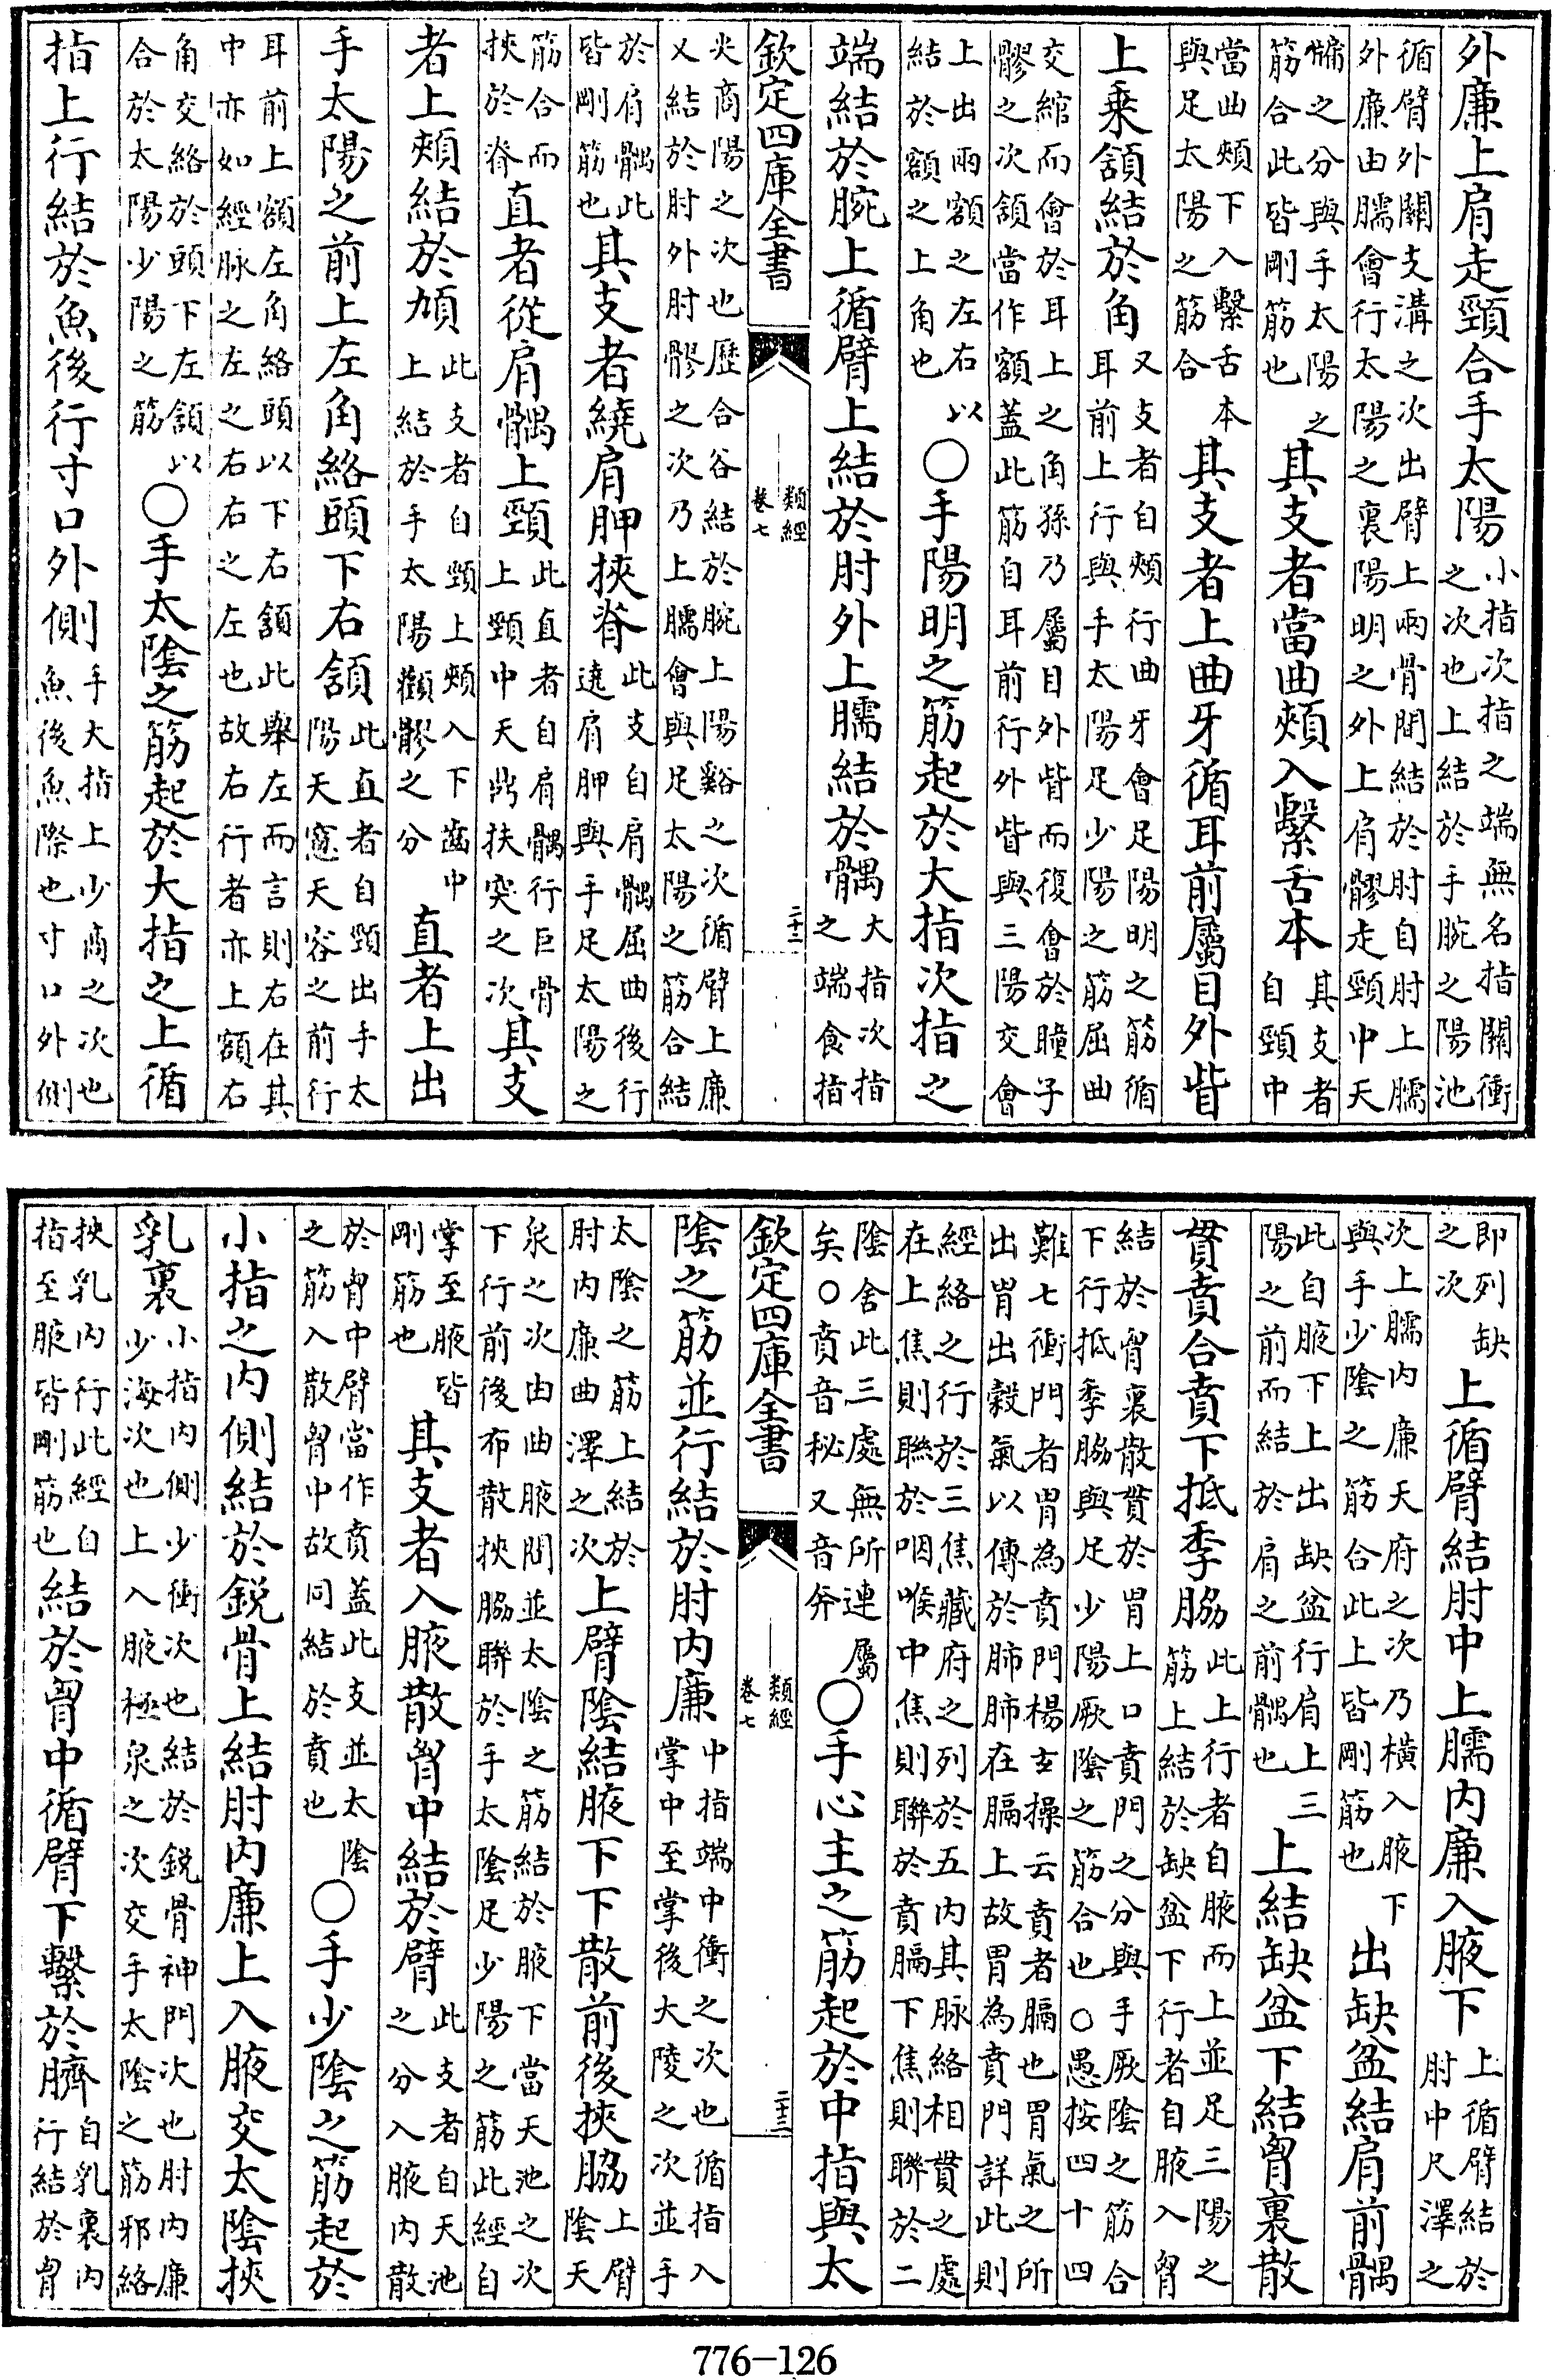 外廉上肩走頸合手太陽小指次指之端無名指關衝
之次也上結於手腕之陽池
循臂外關支溝之次出臂上兩骨間結於肘自肘上臑
外廉由臑會行太陽之裏陽明之外上肩髎走頸中天
牖之分與手太陽之
筋合此皆剛筋也其支者當曲頰入繫舌本其支者
自頸中
當曲頰下入繫舌本
與足太陽之筋合其支者上曲牙循耳前屬目外眥
上乘頷結於角又支者自頰行曲牙會足陽明之筋循
耳前上行與手太陽足少陽之筋屈曲
交綰而會於耳上之角孫乃屬目外眥而復會於瞳子
髎之次頷當作額蓋此筋自耳前行外眥與三陽交會
上出兩額之左右以
結於額之上角也○手陽明之筋起於大指次指之
端結於腕上循臂上結於肘外上臑結於髃大指次指
之端食指
欽定四庫全書
類經
卷七
二十二
尖商陽之次也歷合谷結於腕上陽谿之次循臂上廉
又結於肘外肘髎之次乃上臑會與足太陽之筋合結
於肩髃此
皆剛筋也其支者繞肩胛挾脊此支自肩髃屈曲後行
遶肩胛與手足太陽之
筋合而
挾於脊直者從肩髃上頸此直者自肩髃行巨骨
上頸中天鼎扶突之次其支
者上頰結於頄此支者自頸上頰入下齒中
上結於手太陽顴髎之分直者上出
手太陽之前上左角絡頭下右頷此直者自頸出手太
陽天窓天容之前行
耳前上額左角絡頭以下右頷此舉左而言則右在其
中亦如經脉之左之右右之左也故右行者亦上額右
角交絡於頭下左頷以
合於太陽少陽之筋○手太陰之筋起於大指之上循
指上行結於魚後行寸口外側手大指上少商之次也
魚後魚際也寸口外側
即列缺
之次上循臂結肘中上臑內廉入腋下上循臂結於
肘中尺澤之
次上臑內廉天府之次乃橫入腋下
與手少陰之筋合此上皆剛筋也出缺盆結肩前髃
此自腋下上出缺盆行肩上三
陽之前而結於肩之前髃也上結缺盆下結胷裏散
貫賁合賁下抵季脇此上行者自腋而上並足三陽之
筋上結於缺盆下行者自腋入胷
結於胷裏散貫於胃上口賁門之分與手厥陰之筋合
下行抵季脇與足少陽厥陰之筋合也○愚按四十四
難七衝門者胃為賁門楊玄操云賁者膈也胃氣之所
出胃出穀氣以傳於肺肺在膈上故胃為賁門詳此則
經絡之行於三焦藏府之列於五內其脉絡相貫之處
在上焦則聯於咽喉中焦則聯於賁膈下焦則聯於二
陰舍此三處無所連屬
矣○賁音秘又音奔○手心主之筋起於中指與太
欽定四庫全書
類經
卷七
二十三
陰之筋並行結於肘內廉中指端中衝之次也循指入
掌中至掌後大陵之次並手
太陰之筋上結於
肘內廉曲澤之次上臂陰結腋下下散前後挾脇上臂
陰天
泉之次由曲腋間並太陰之筋結於腋下當天池之次
下行前後布散挾脇聯於手太陰足少陽之筋此經自
掌至腋皆
剛筋也其支者入腋散胷中結於臂此支者自天池
之分入腋內散
於胷中臂當作賁蓋此支並太陰
之筋入散胷中故同結於賁也○手少陰之筋起於
小指之內側結於銳骨上結肘內廉上入腋交太陰挾
乳裏小指內側少衝次也結於銳骨神門次也肘內廉
少海次也上入腋極泉之次交手太陰之筋邪絡
挾乳內行此經自
指至腋皆剛筋也結於胷中循臂下繫於臍自乳裏內
行結於胷
776-126